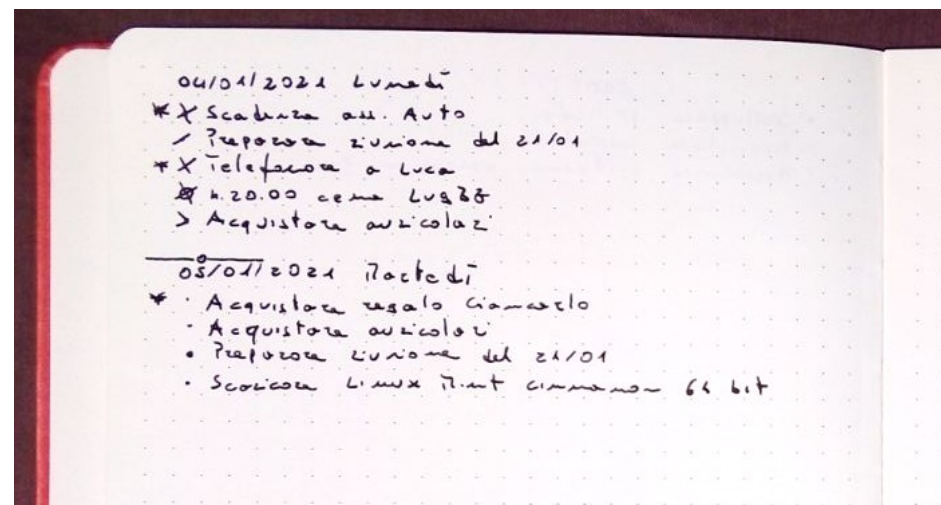 04/01/2021 Lunedì
* X Scadenza ass. Auto
/ Preparare riunione del 21/01
* X Telefonare a Luca
h.20.00 cena
> Acquistare auricolari
05/01/2021 Martedì
* · Acquistare regalo Giancarlo
· Acquistare auricolari
· Preparare riunione del 21/01
· Scaricare Linux Mint cinnamon 64 bit